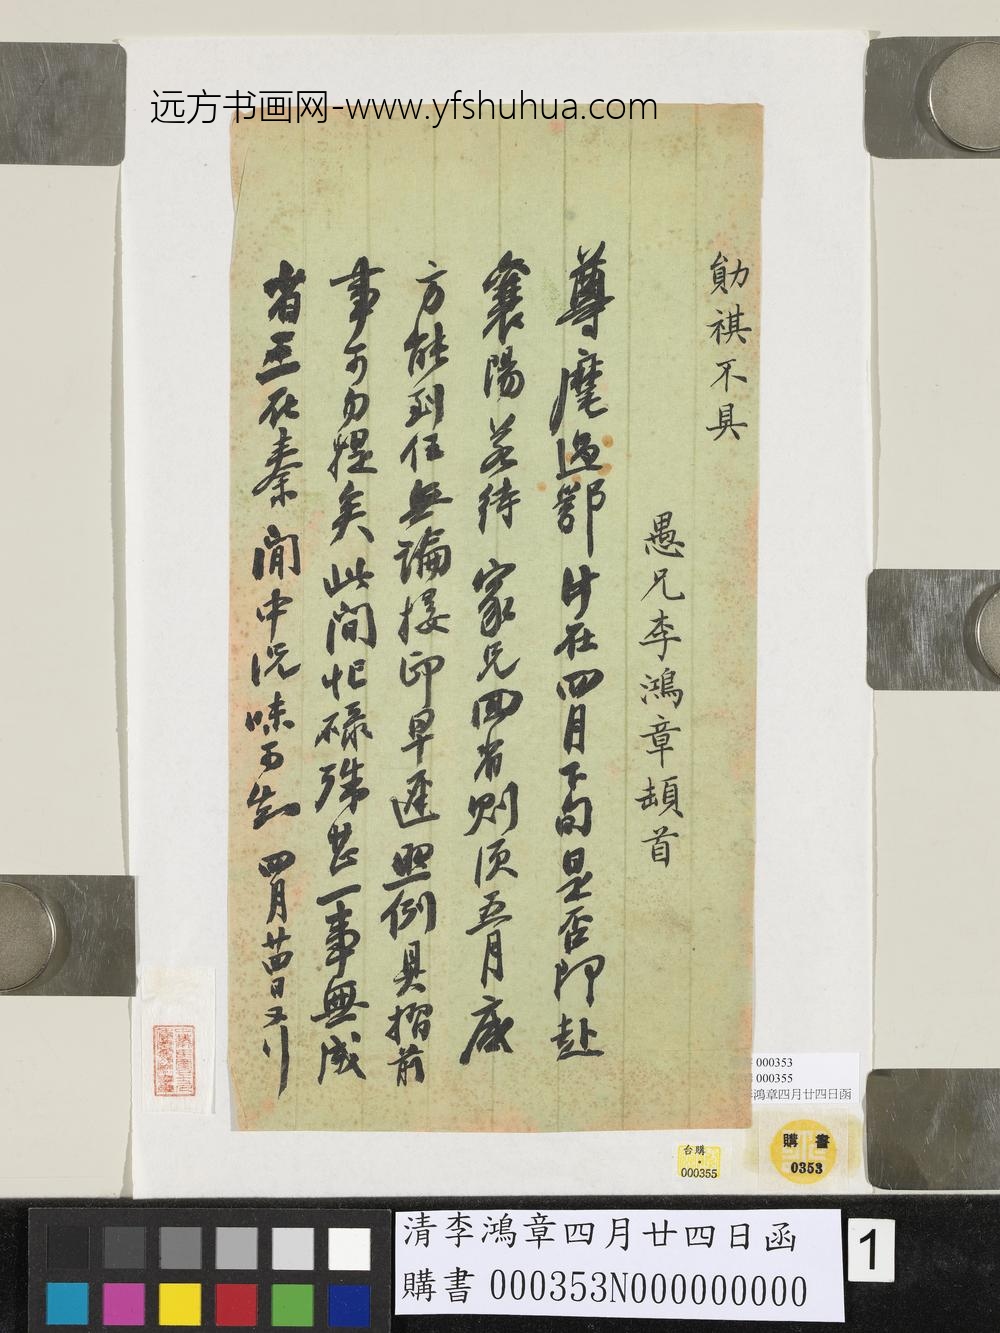 远方书画网-www.yfshuhua.com
勛祺不具
愚兄李鴻章頓首
尊麾過鄂廾在四月下旬是否即赴
襄陽若待 家兄回省則須五月底
方能到任無論接印早遲照例具摺前
事可勿提矣此間忙碌殊甚一事無成
省三在秦 聞中況味可知 四月廿四日又行
000353
000355
鴻章四月廿四日函
購書
0353
台購
000355
清李鴻章四月廿四日函
購書 000353N000000000
1